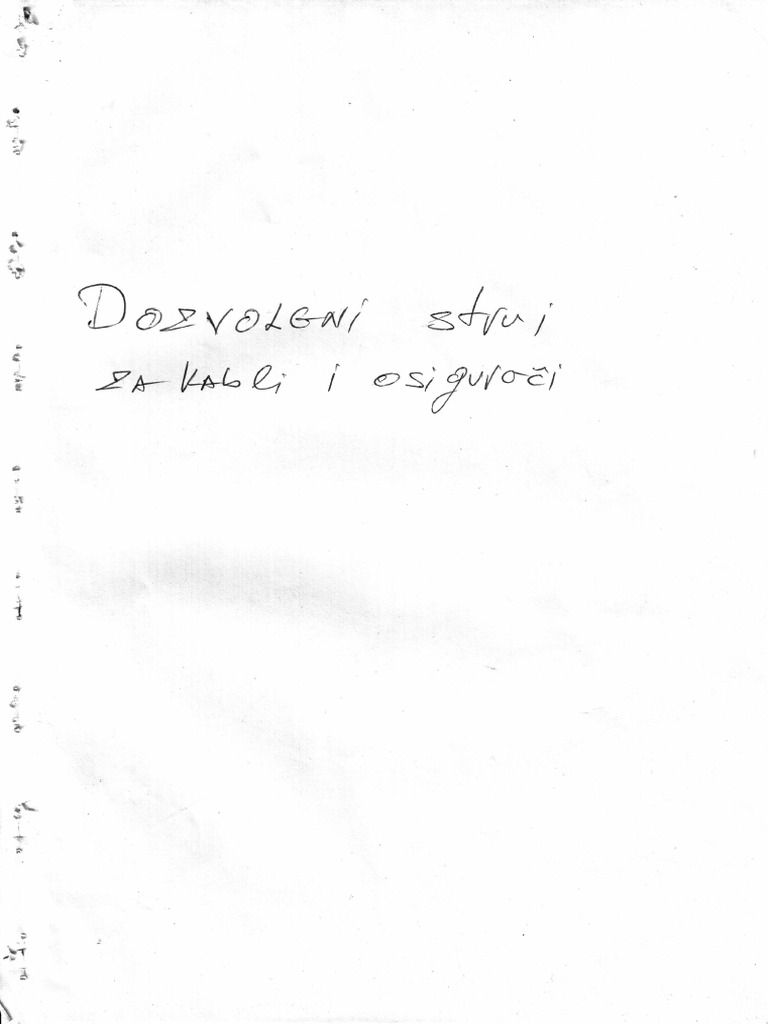 DOZVOLENI struj
ZA KABLI i osigurači